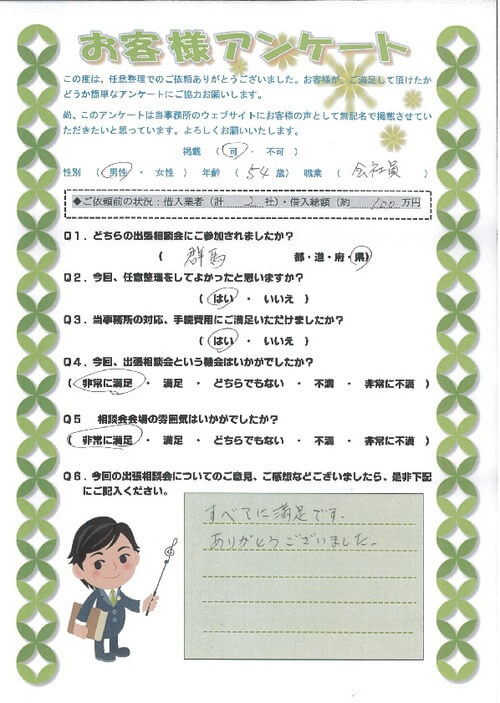 お客様アンケート
この度は、任意整理でのご依頼ありがとうございました。お客様が、ご満足して頂けたか
どうか簡単なアンケートにご協力お願いします。
尚、このアンケートは当事務所のウェブサイトにお客様の声として無記名で掲載させてい
ただきたいと思っています。よろしくお願いいたします。
掲載 ( 可 ・ 不可 )
性別 ( 男性 ・ 女性 ) 年齢 ( 54 歳) 職業 ( 会社員 )
◆ご依頼前の状況：借入業者（計 2 社）・借入総額（約 100 万円
Q1．どちらの出張相談会にご参加されましたか？
( 群馬 都・道・府・県)
Q2．今回、任意整理をしてよかったと思いますか？
( はい ・ いいえ )
Q3．当事務所の対応、手続費用にご満足いただけましたか？
( はい ・ いいえ )
Q4．今回、出張相談会という機会はいかがでしたか？
( 非常に満足 ・ 満足 ・ どちらでもない ・ 不満 ・ 非常に不満 )
Q5 相談会会場の雰囲気はいかがでしたか？
( 非常に満足 ・ 満足 ・ どちらでもない ・ 不満 ・ 非常に不満 )
Q6．今回の出張相談会についてのご意見、ご感想などございましたら、是非下記
にご記入ください。
すべてに満足です.
ありがとうございました。